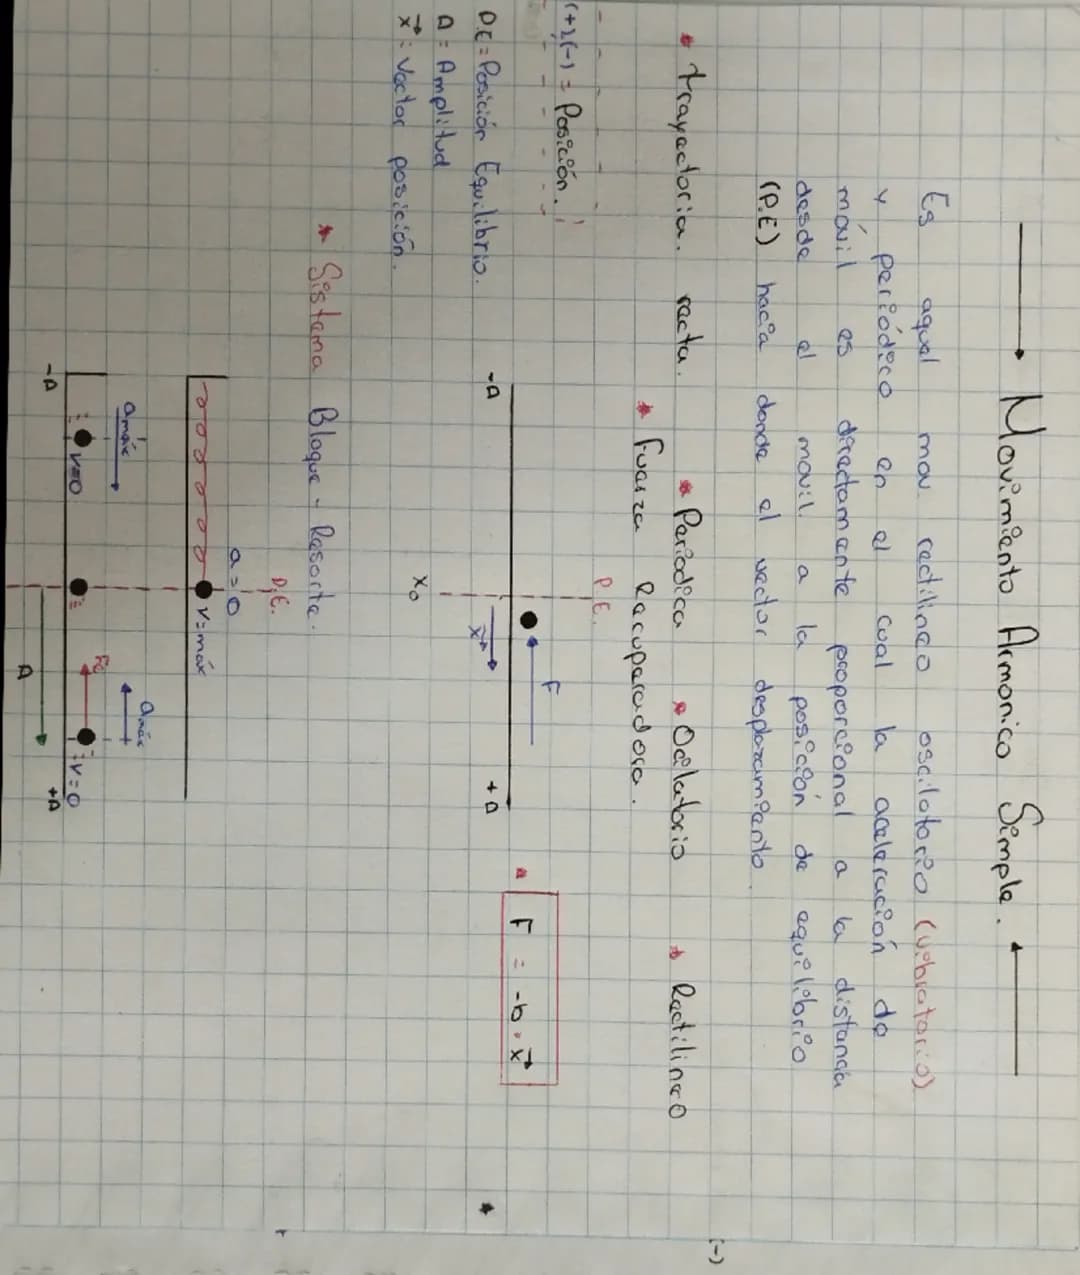 Movimiento Armonico Simple.
Es aquel mov. rectilineo oscilatorio (vibratorio)
y periódico en el cual la aceleración de
móvil es directamente proporcional a la distancia
desde el movil a la posición de equilibrio
(P.E) hacia donde el vector desplazamiento.
* trayectoria recta. * Periodica * Ocilatorio * Rectilineo
* Fuerza Recuperadora.
(+),(-) = Posición.
P.E = Posición Equilibrio.
A = Amplitud
x = Vector posición.
P.E.
F
-A
x
+A
X₀
* F = -b · x
(-)
* Sistema Bloque - Resorte.
P.E.
a = 0
v = máx
amáx
v=0
-A
amáx
Fe
v=0
A
+A